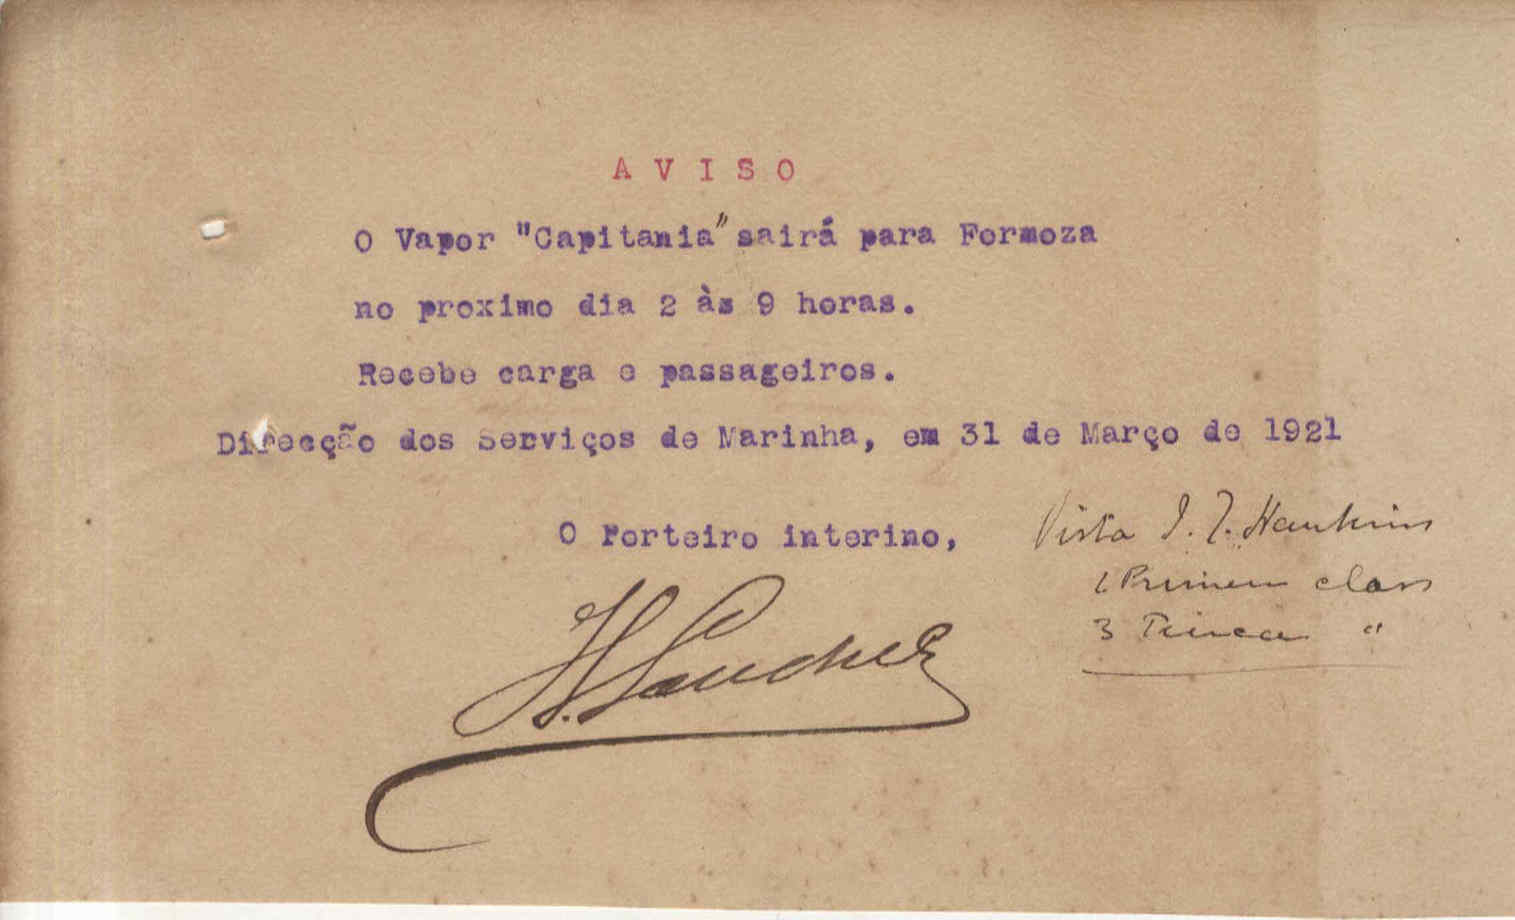 AVISO
O Vapor "Capitania" sairá para Formoza
no proximo dia 2 às 9 horas.
Recebe carga e passageiros.
Direcção dos Serviços de Marinha, em 31 de Março de 1921
O Porteiro interino,
Vista J. J. Hawkins
1 Primeira class
3 "
H. Sanches